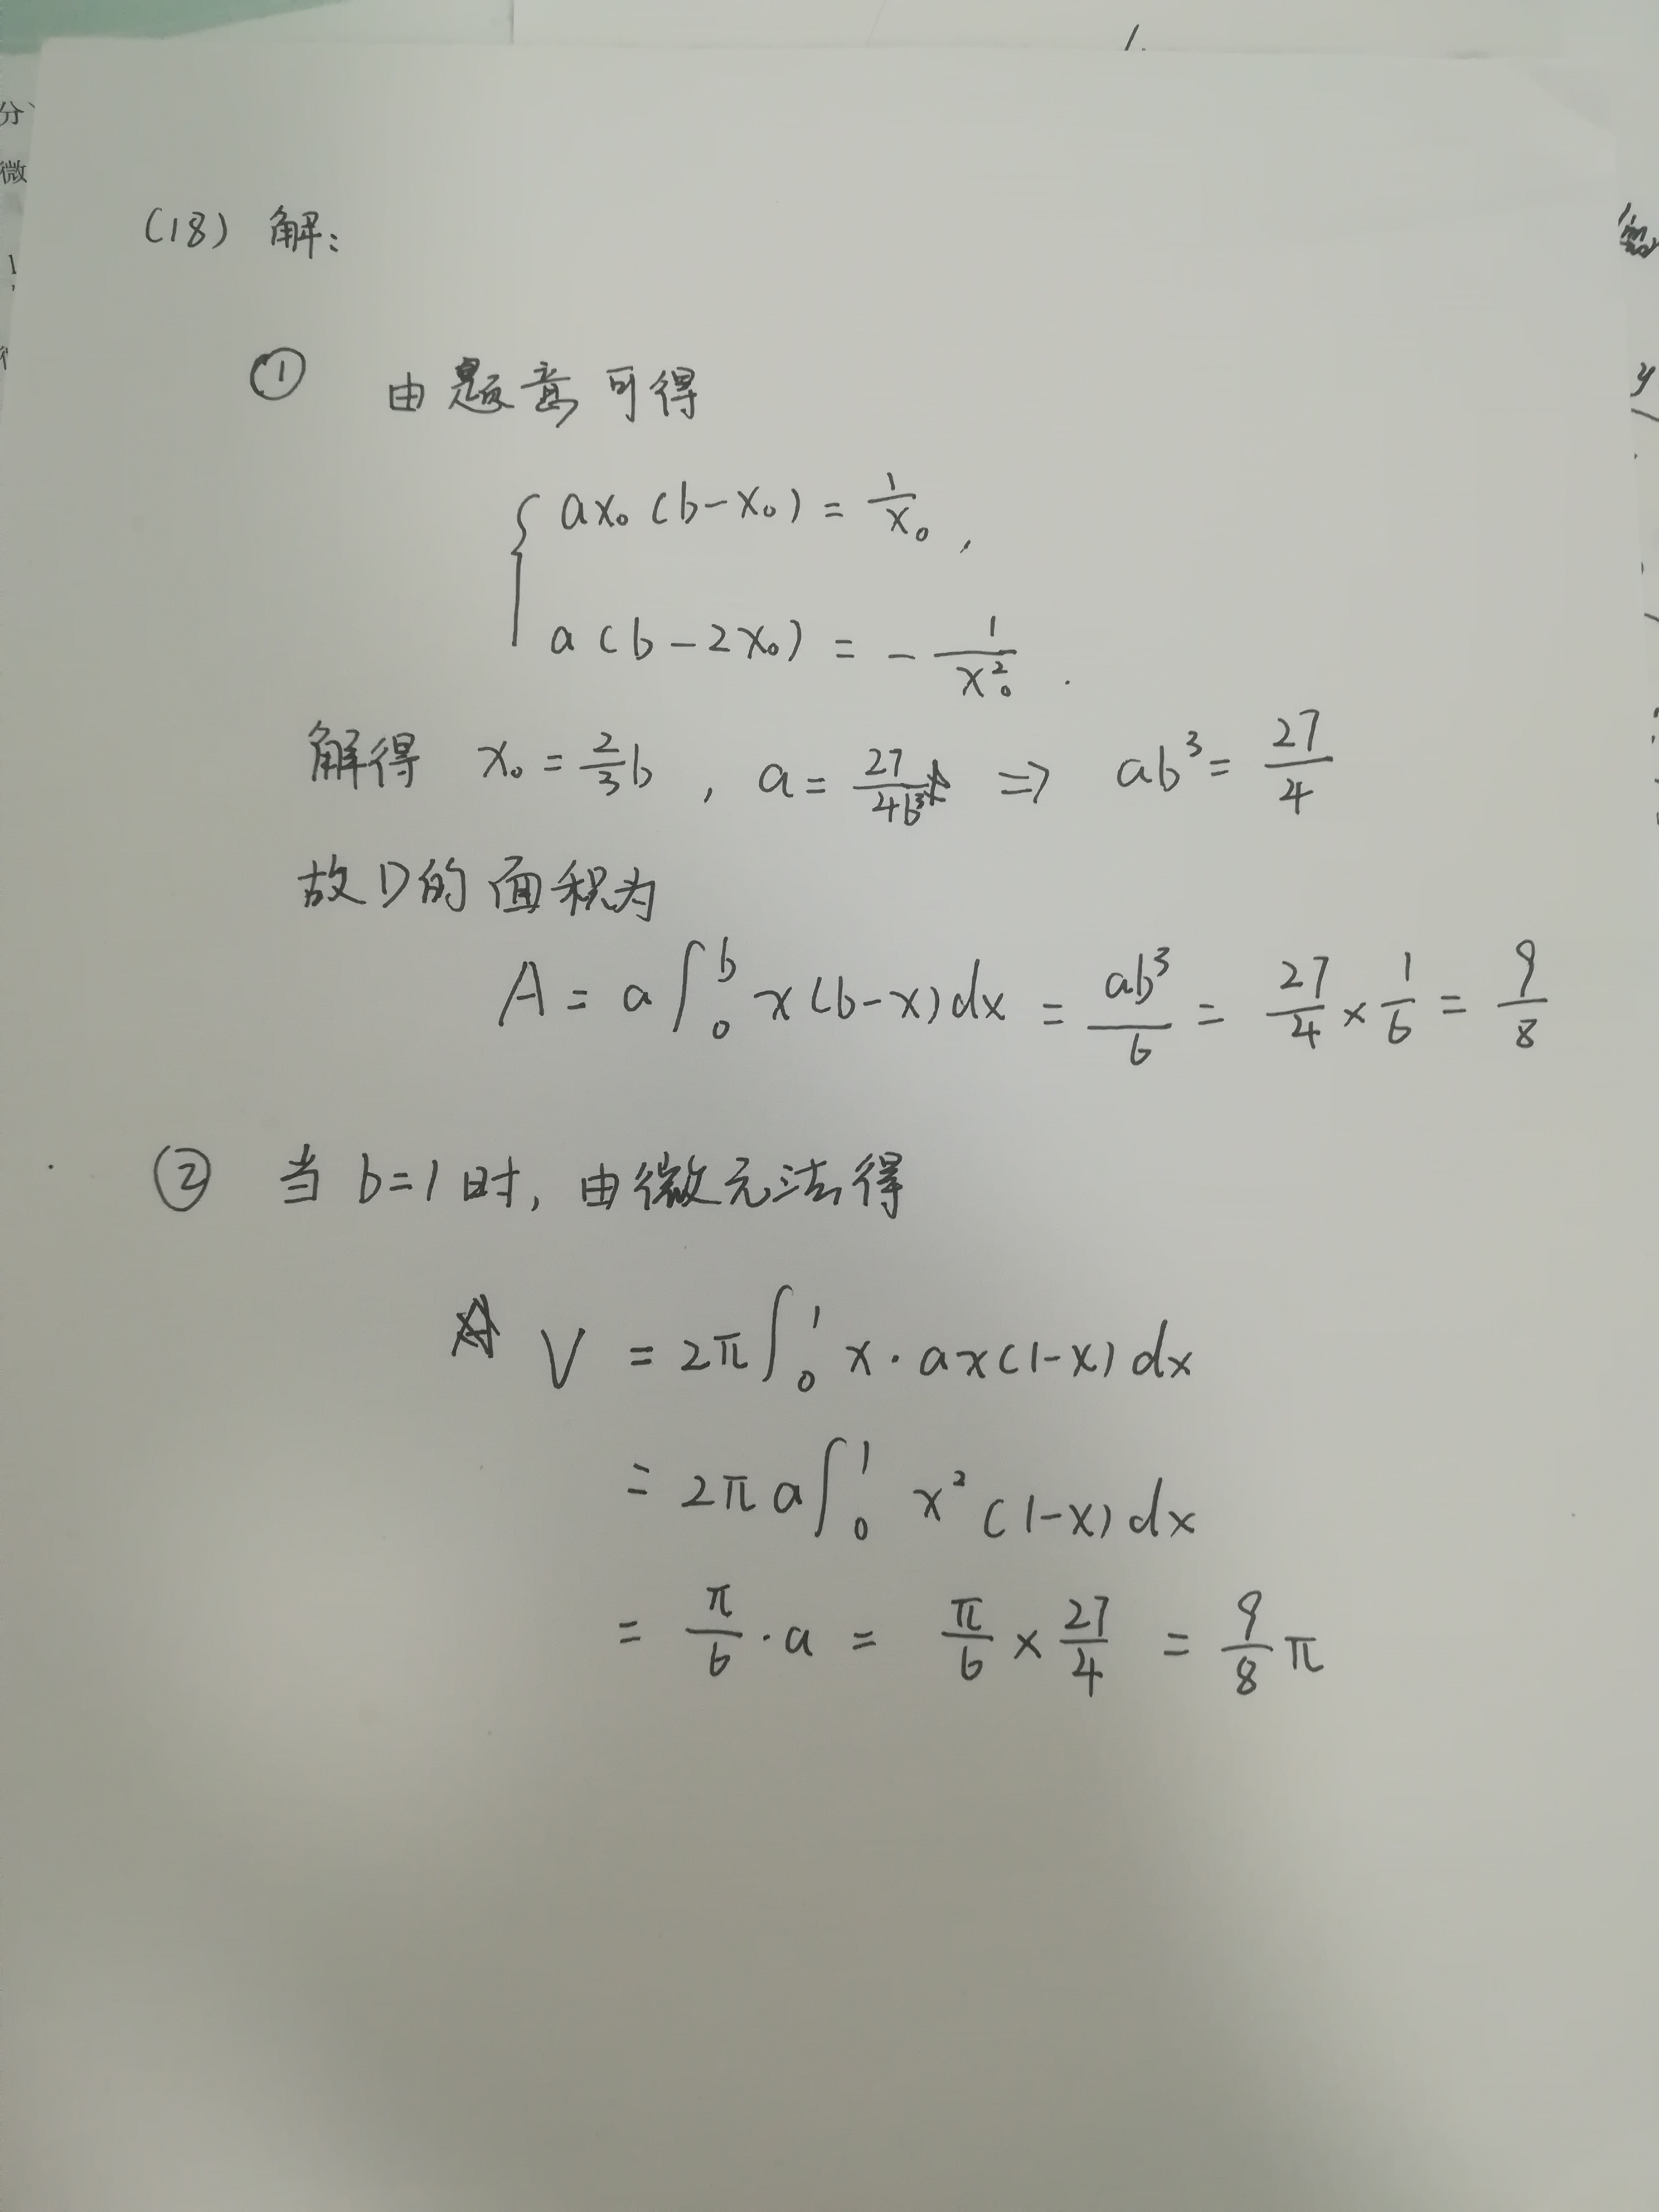 1.
分、
微
(18) 解:
① 由题意可得
{ ax₀(b-x₀) = 1/x₀ ,
a(b-2x₀) = - 1/x₀² .
解得 x₀ = 2/3 b , a = 27/4b³ ⇒ ab³ = 27/4
故D的面积为
A = a∫₀ᵇ x(b-x)dx = ab³/6 = 27/4 × 1/6 = 9/8
② 当 b=1 时, 由微元法得
V = 2π∫₀¹ x·ax(1-x)dx
= 2πa∫₀¹ x²(1-x)dx
= π/6 · a = π/6 × 27/4 = 9/8 π
y